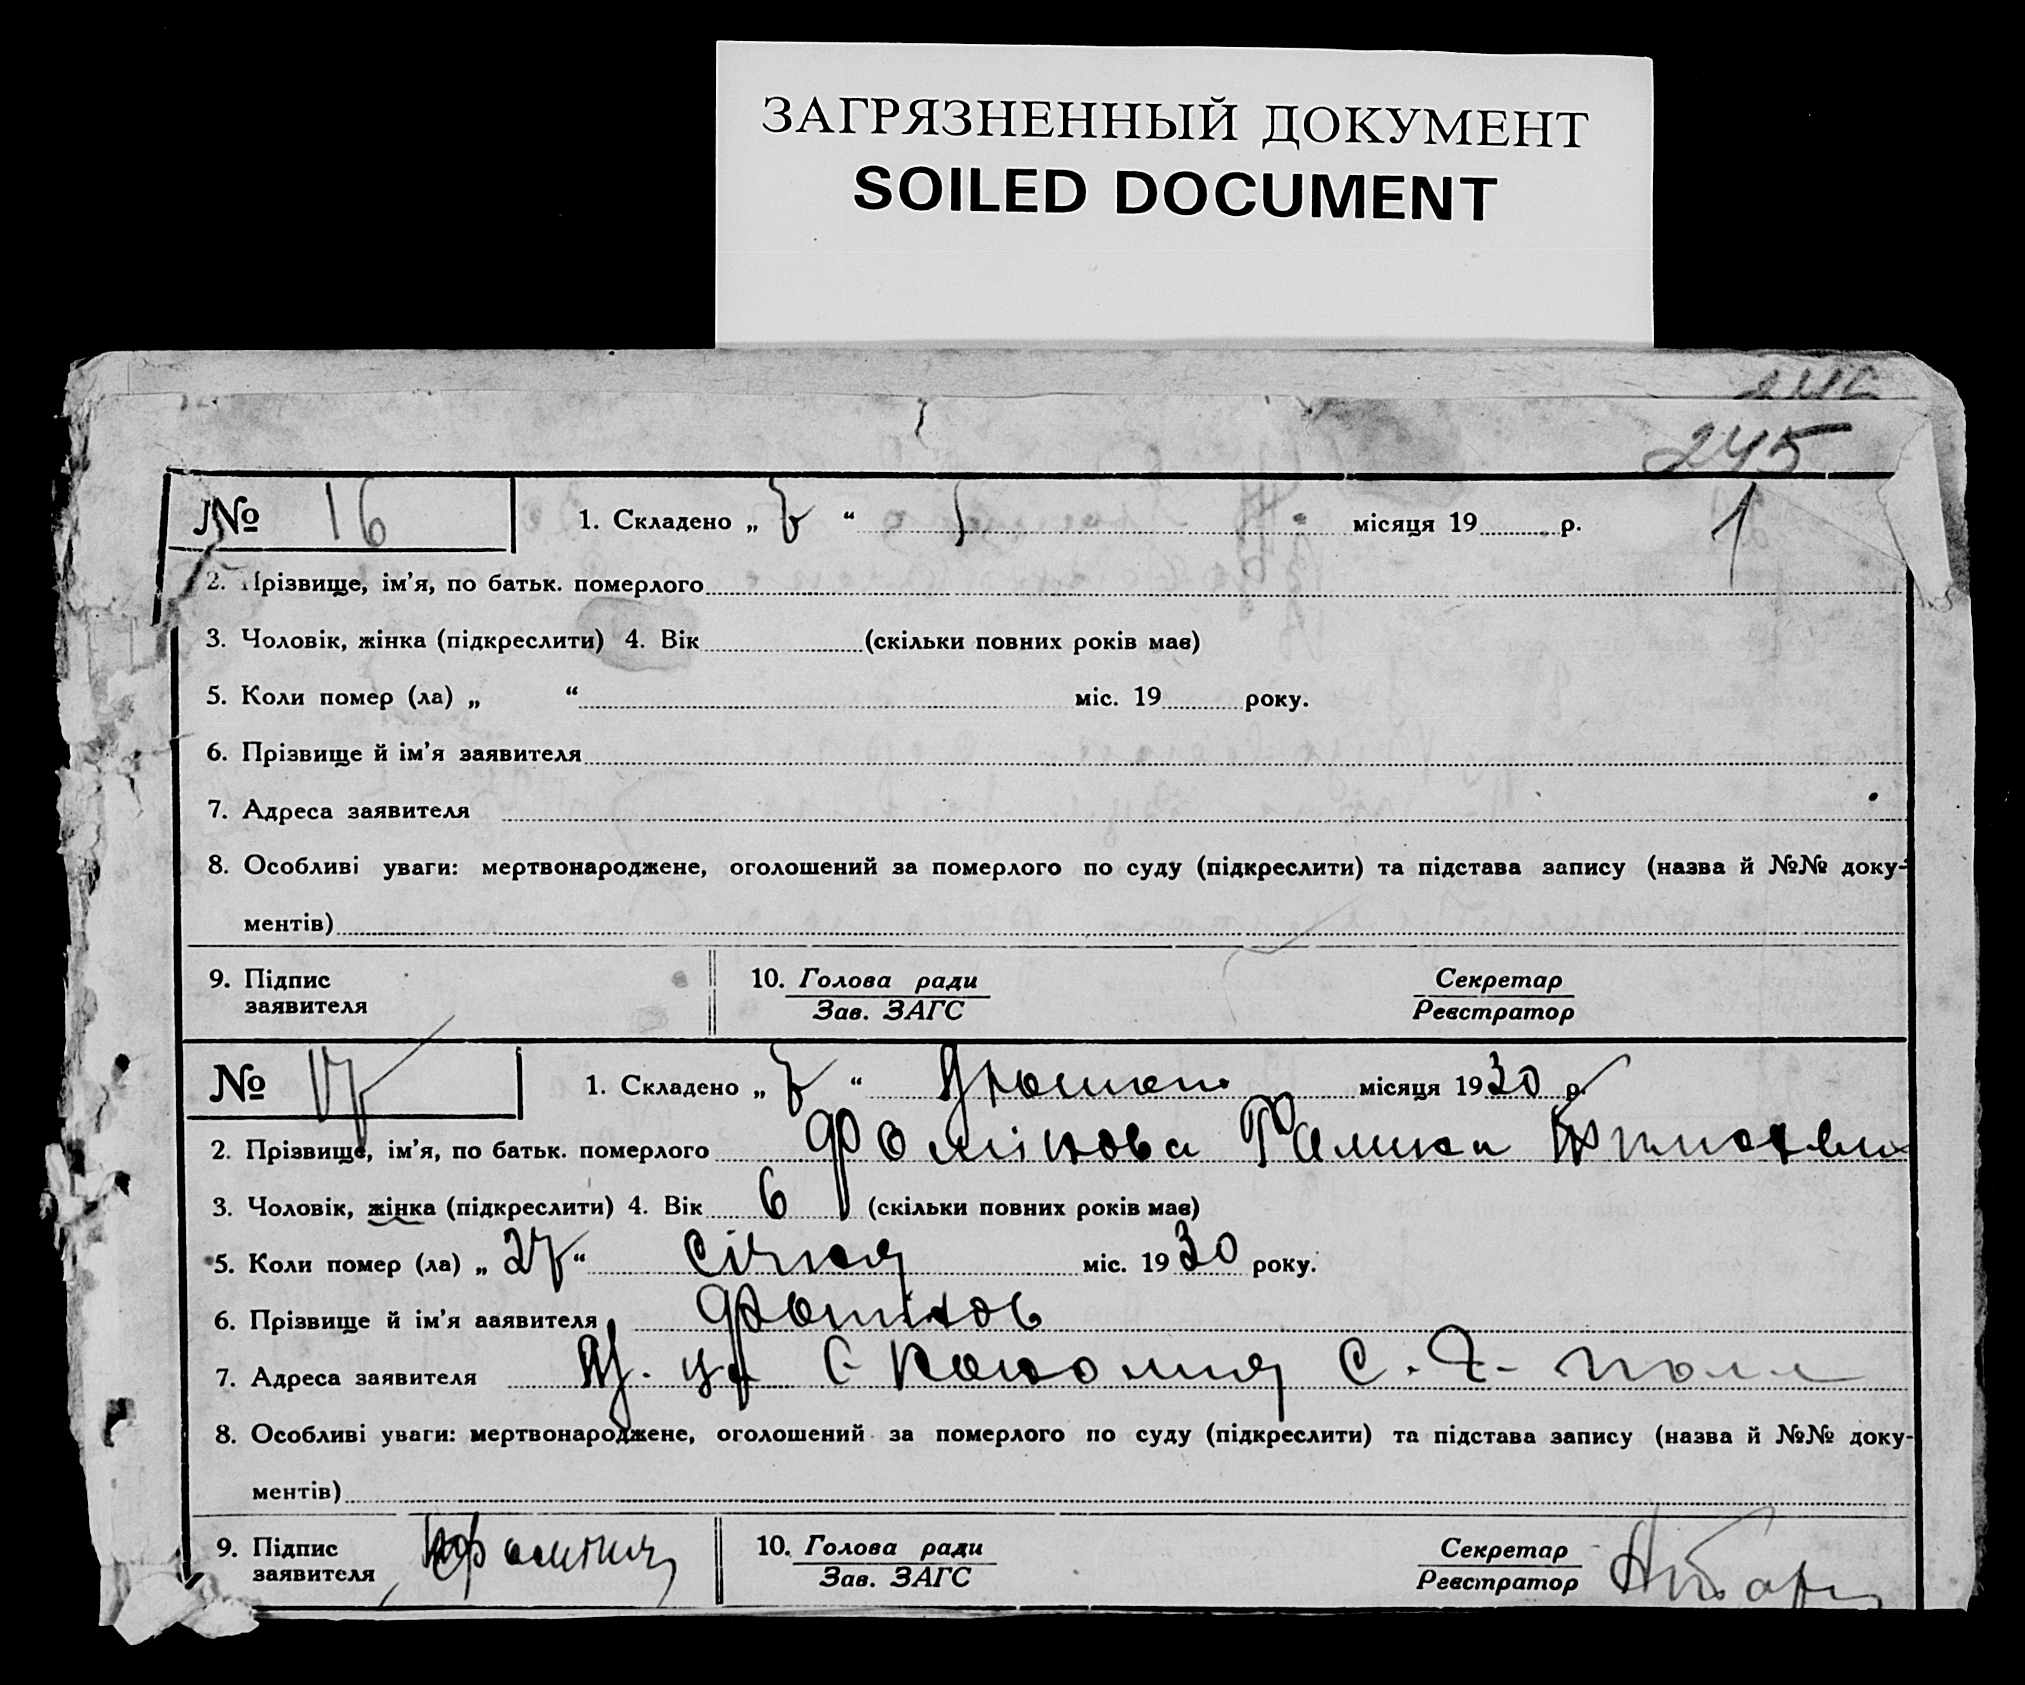 ЗАГРЯЗНЕННЫЙ ДОКУМЕНТ
SOILED DOCUMENT
245
1
№ 16
1. Складено „ 7 “ місяця 19 р.
2. Прізвище, ім'я, по батьк. померлого
3. Чоловік, жінка (підкреслити) 4. Вік (скільки повних років має)
5. Коли помер (ла) „ “ міс. 19 року.
6. Прізвище й ім'я заявителя
7. Адреса заявителя
8. Особливі уваги: мертвонароджене, оголошений за померлого по суду (підкреслити) та підстава запису (назва й №№ доку-
ментів)
9. Підпис заявителя
10. Голова ради
Зав. ЗАГС
Секретар
Реєстратор
№ 17
1. Складено „ 7 “ Лютого місяця 1930 р.
2. Прізвище, ім'я, по батьк. померлого Фомінова
3. Чоловік, жінка (підкреслити) 4. Вік 6 (скільки повних років має)
5. Коли помер (ла) „ 27 “ січня міс. 1930 року.
6. Прізвище й ім'я заявителя
7. Адреса заявителя
8. Особливі уваги: мертвонароджене, оголошений за померлого по суду (підкреслити) та підстава запису (назва й №№ доку-
ментів)
9. Підпис заявителя
10. Голова ради
Зав. ЗАГС
Секретар
Реєстратор